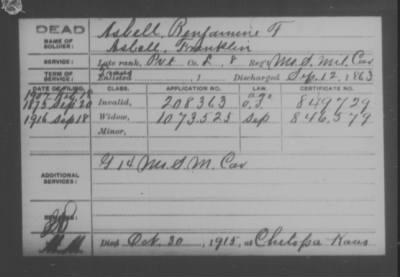 DEAD
NAME OF SOLDIER: Asbell, Benjamine F
Asbell, Franklin
SERVICE: Late rank, Pvt Co. L, 8 Reg't Mo. S. Mil. Cav
TERM OF SERVICE: Enlisted , 1 Discharged Sep. 12, 1863
DATE OF FILING. CLASS. APPLICATION NO. LAW. CERTIFICATE NO.
1907 age
1875 Sep 20 Invalid, 208363 849729
1916 Sep 18 Widow, 1073525 Sep 846579
Minor,
ADDITIONAL SERVICES: G 14 Mo. S. M. Cav
REMARKS:
Died Oct. 30, 1915, at Chetopa Kans